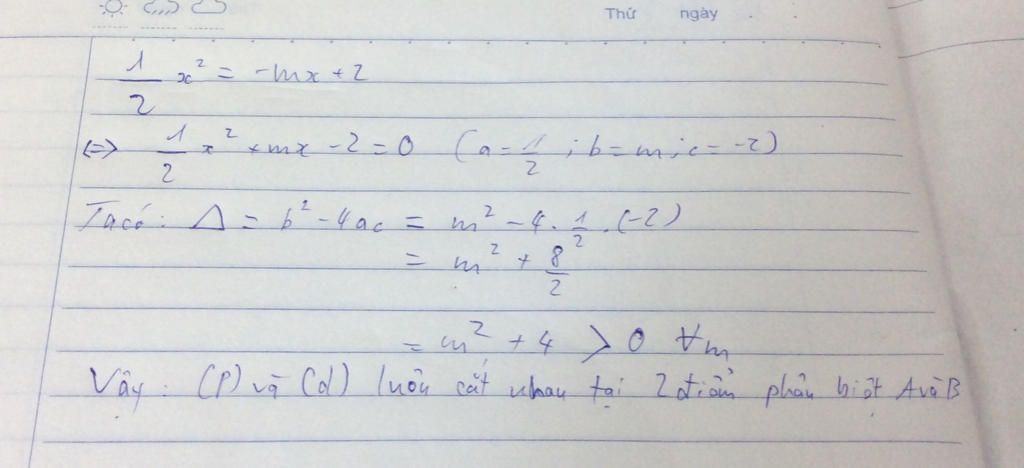 Thứ ngày .
1/2 x² = -mx + 2
<=> 1/2 x² + mx - 2 = 0 (a = 1/2 ; b = m ; c = -2)
Ta có : Δ = b² - 4ac = m² - 4 . 1/2 . (-2)
= m² + 8/2
= m² + 4 > 0 ∀m
Vậy : (P) và (d) luôn cắt nhau tại 2 điểm phân biệt A và B